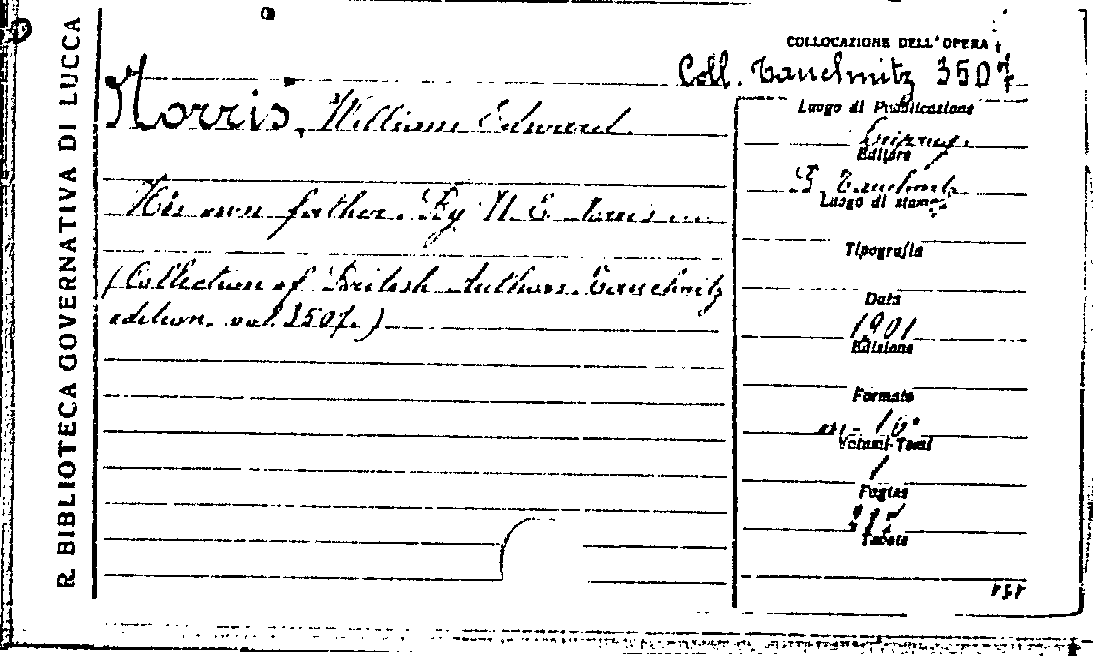 R. BIBLIOTECA GOVERNATIVA DI LUCCA
COLLOCAZIONE DELL'OPERA
Coll. Tauchnitz 3507
Norris, William Edward
His own father. By W. E. Norris
(Collection of British Authors. Tauchnitz
edition. vol. 3507.)
Luogo di Pubblicazione
Leipzig
Editore
B. Tauchnitz
Luogo di stampa
Tipografia
Data
1901
Edizione
Formato
in-16°
Volumi-Tomi
1
Pagine
Tavole